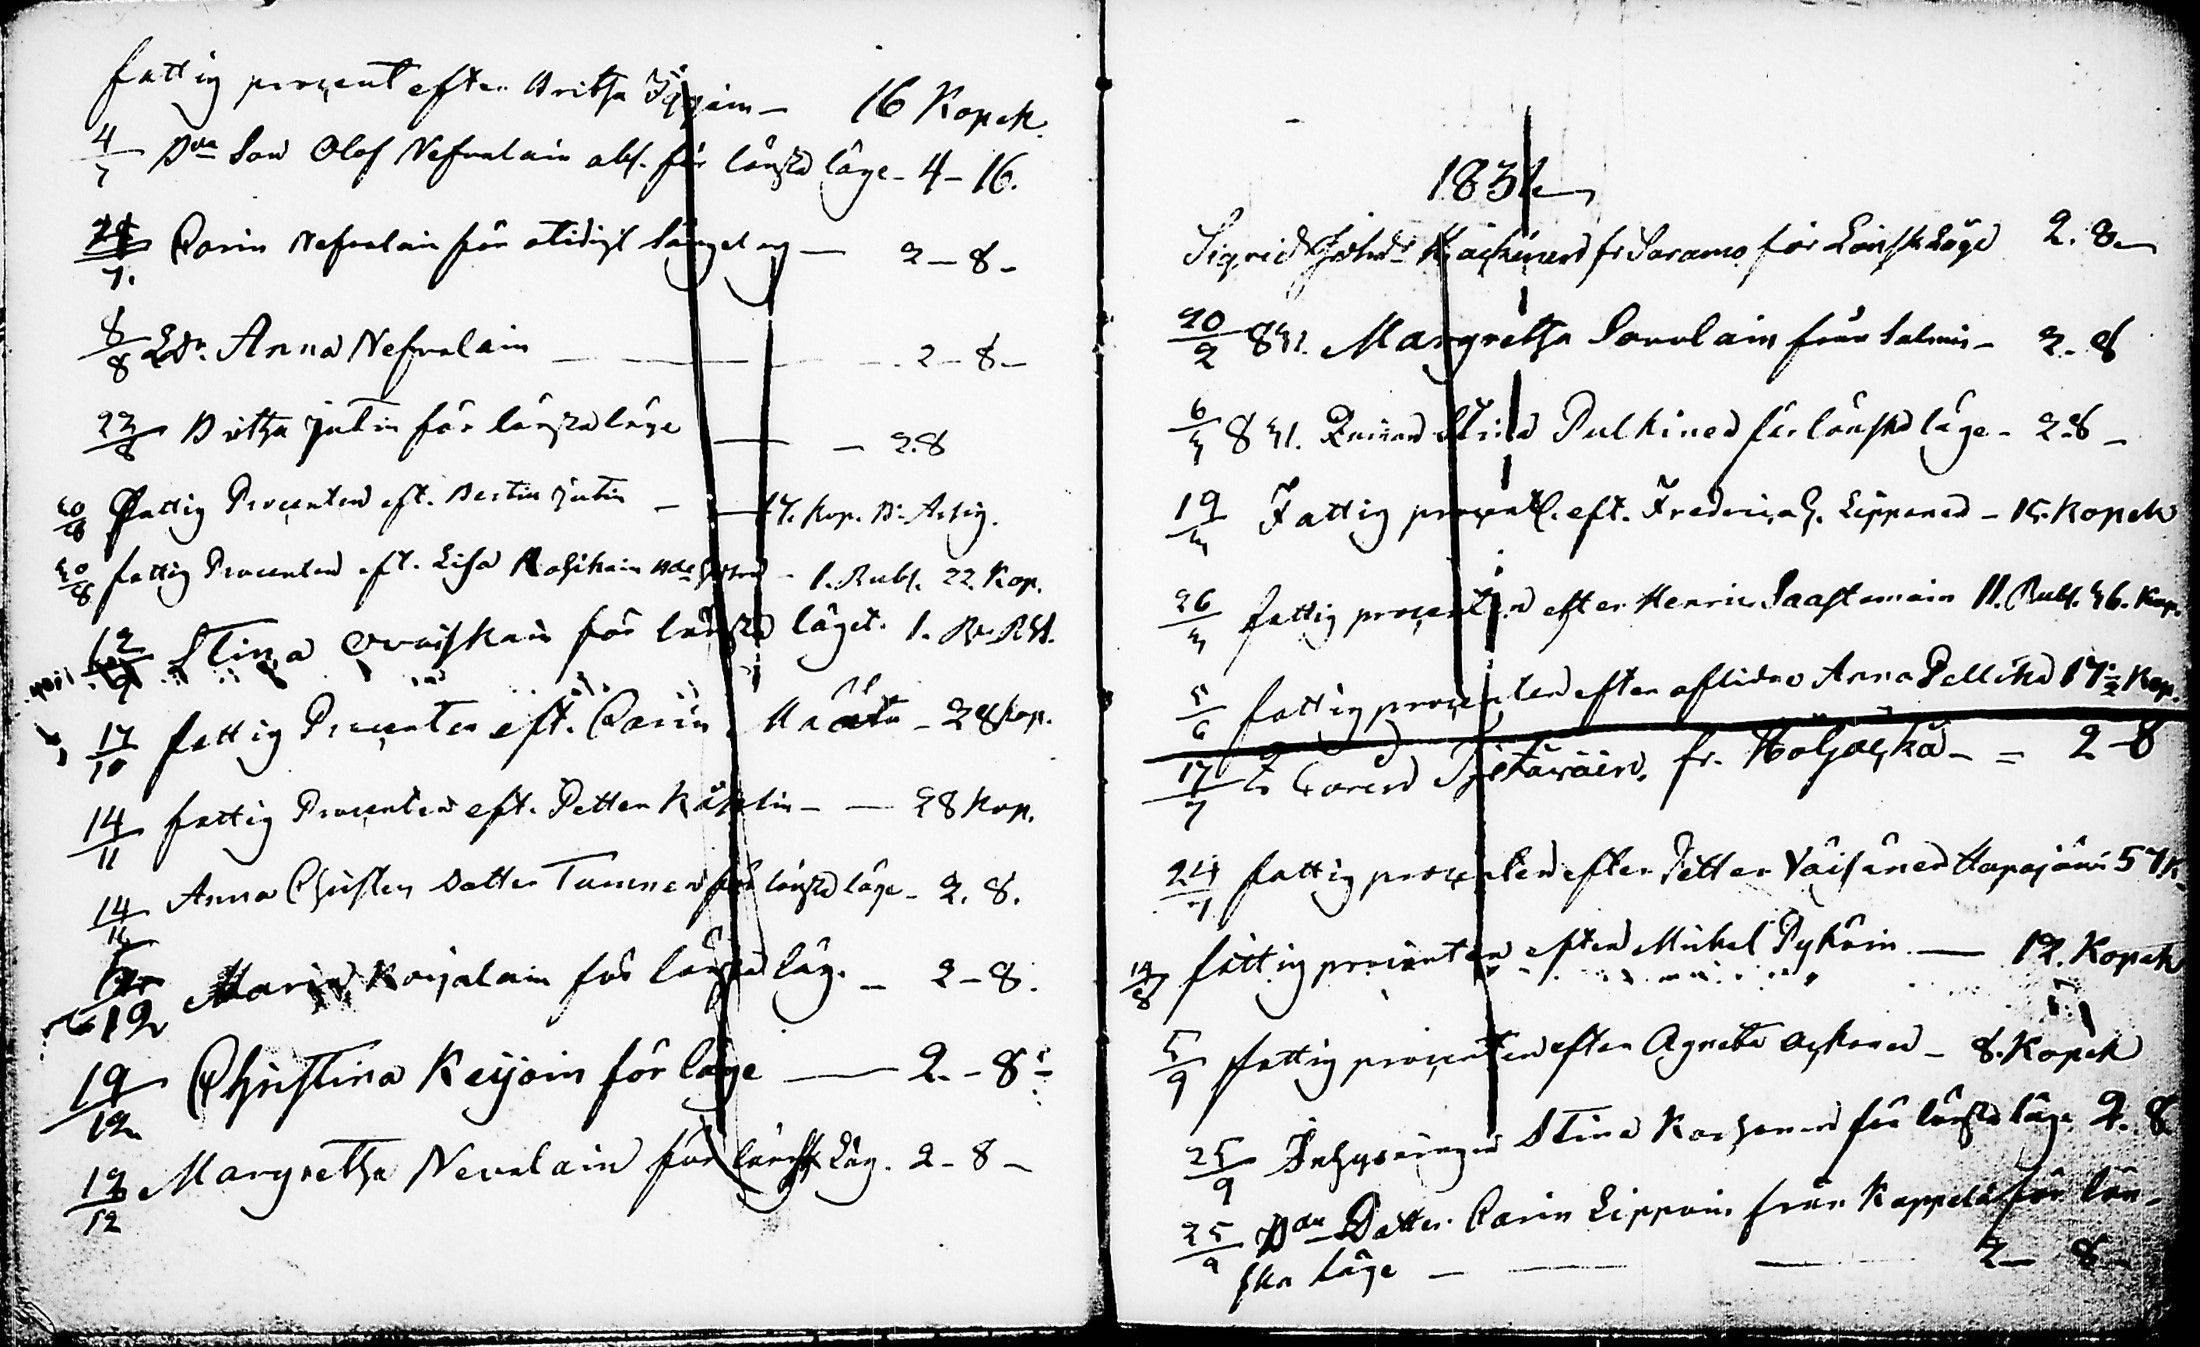 fattig percent efter Britha 16 Kopek.
4/7 Son Olof Nefvalain för lönska läge - 4 - 16.
7. Carin Nefvalain för otidigt sängelag — 2 - 8 -
8/8 Anna Nefvalain — — — 2 - 8 -
22/8 Britha Jutin för lönska läge — — 2.8
30/8 fattig Procenten eft. Bertin Jutin — — 17. Kop. B. Assig.
30/8 fattig Procenten eft. Lisa - 1. Rubl. 22. Kop.
12/9 Stina Ovaskain för lönska läget. 1.
17/10 fattig Procenten eft. Carin - 28 Kop.
14/11 fattig Procenten eft. Petter - — 28 Kop.
14/11 Anna Christers Dotter Tumenen för lönska läge - 2. 8.
12 Maria Korjalain för lönska läg. - 2 - 8.
19/12 Christina Keijoin för läge — 2. - 8 -
19/12 Margretha Nevalain för lönsk Läg. 2 - 8 -
1831
Sigrid Kächinen fr Saramo för Lönsk Läge 2. 8 —
20/2 831. Margretha Savolain från Salmis - 2. 8
6/3 831. Stina Pulkinen för lönska läge - 2.8 -
19/3 Fattig procent. eft. Fredric Lipponen - 15. Kopek
26/3 fattig procenten efter Henric Saastamoin 11. Rubl. 36. Kop.
5/6 fattig procenten efter aflidne Anna Pellika 17½ Kop.
17/7 Caren fr. Höljäckä - = 2 - 8
24/7 fattig procenten efter Petter Väisänen Haapajärvi 57 K.
14/8 fattig procenten efter Mickel Pykäin — 12. Kopek
5/9 fattig procenten efter Agneta - 8. Kopek
25/9 Inhysningen Stina Korhonen för lönska läge 2. 8
25/9 Dotter Carin Lippoin från Kappeli för lön-
ska läge — — — 2 — 8 —